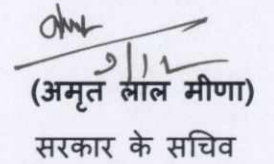 (अमृत लाल मीणा)
सरकार के सचिव